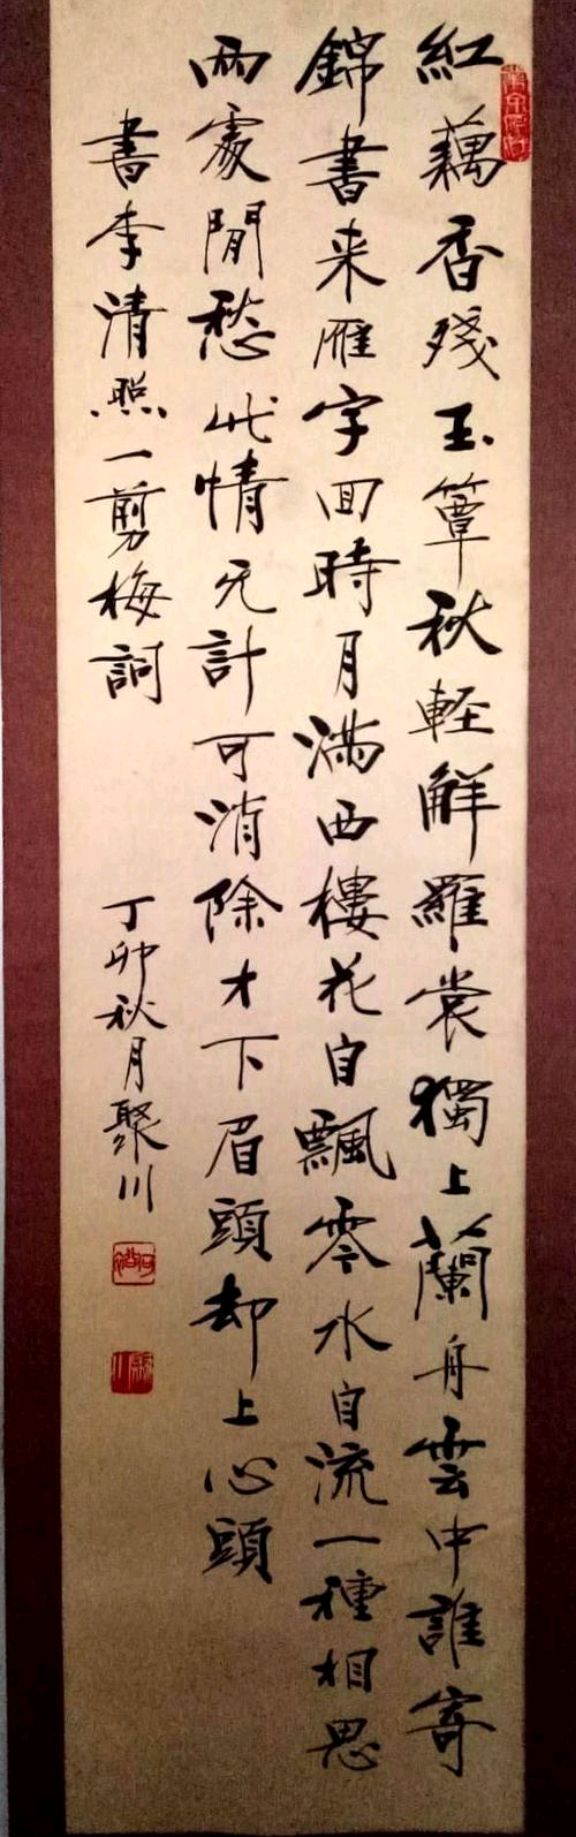 紅藕香殘玉簟秋輕解羅裳獨上蘭舟雲中誰寄
錦書来雁字回時月滿西樓花自飄零水自流一種相思
兩處閒愁此情无計可消除才下眉頭却上心頭
書李清照一剪梅詞
丁卯秋月聚川